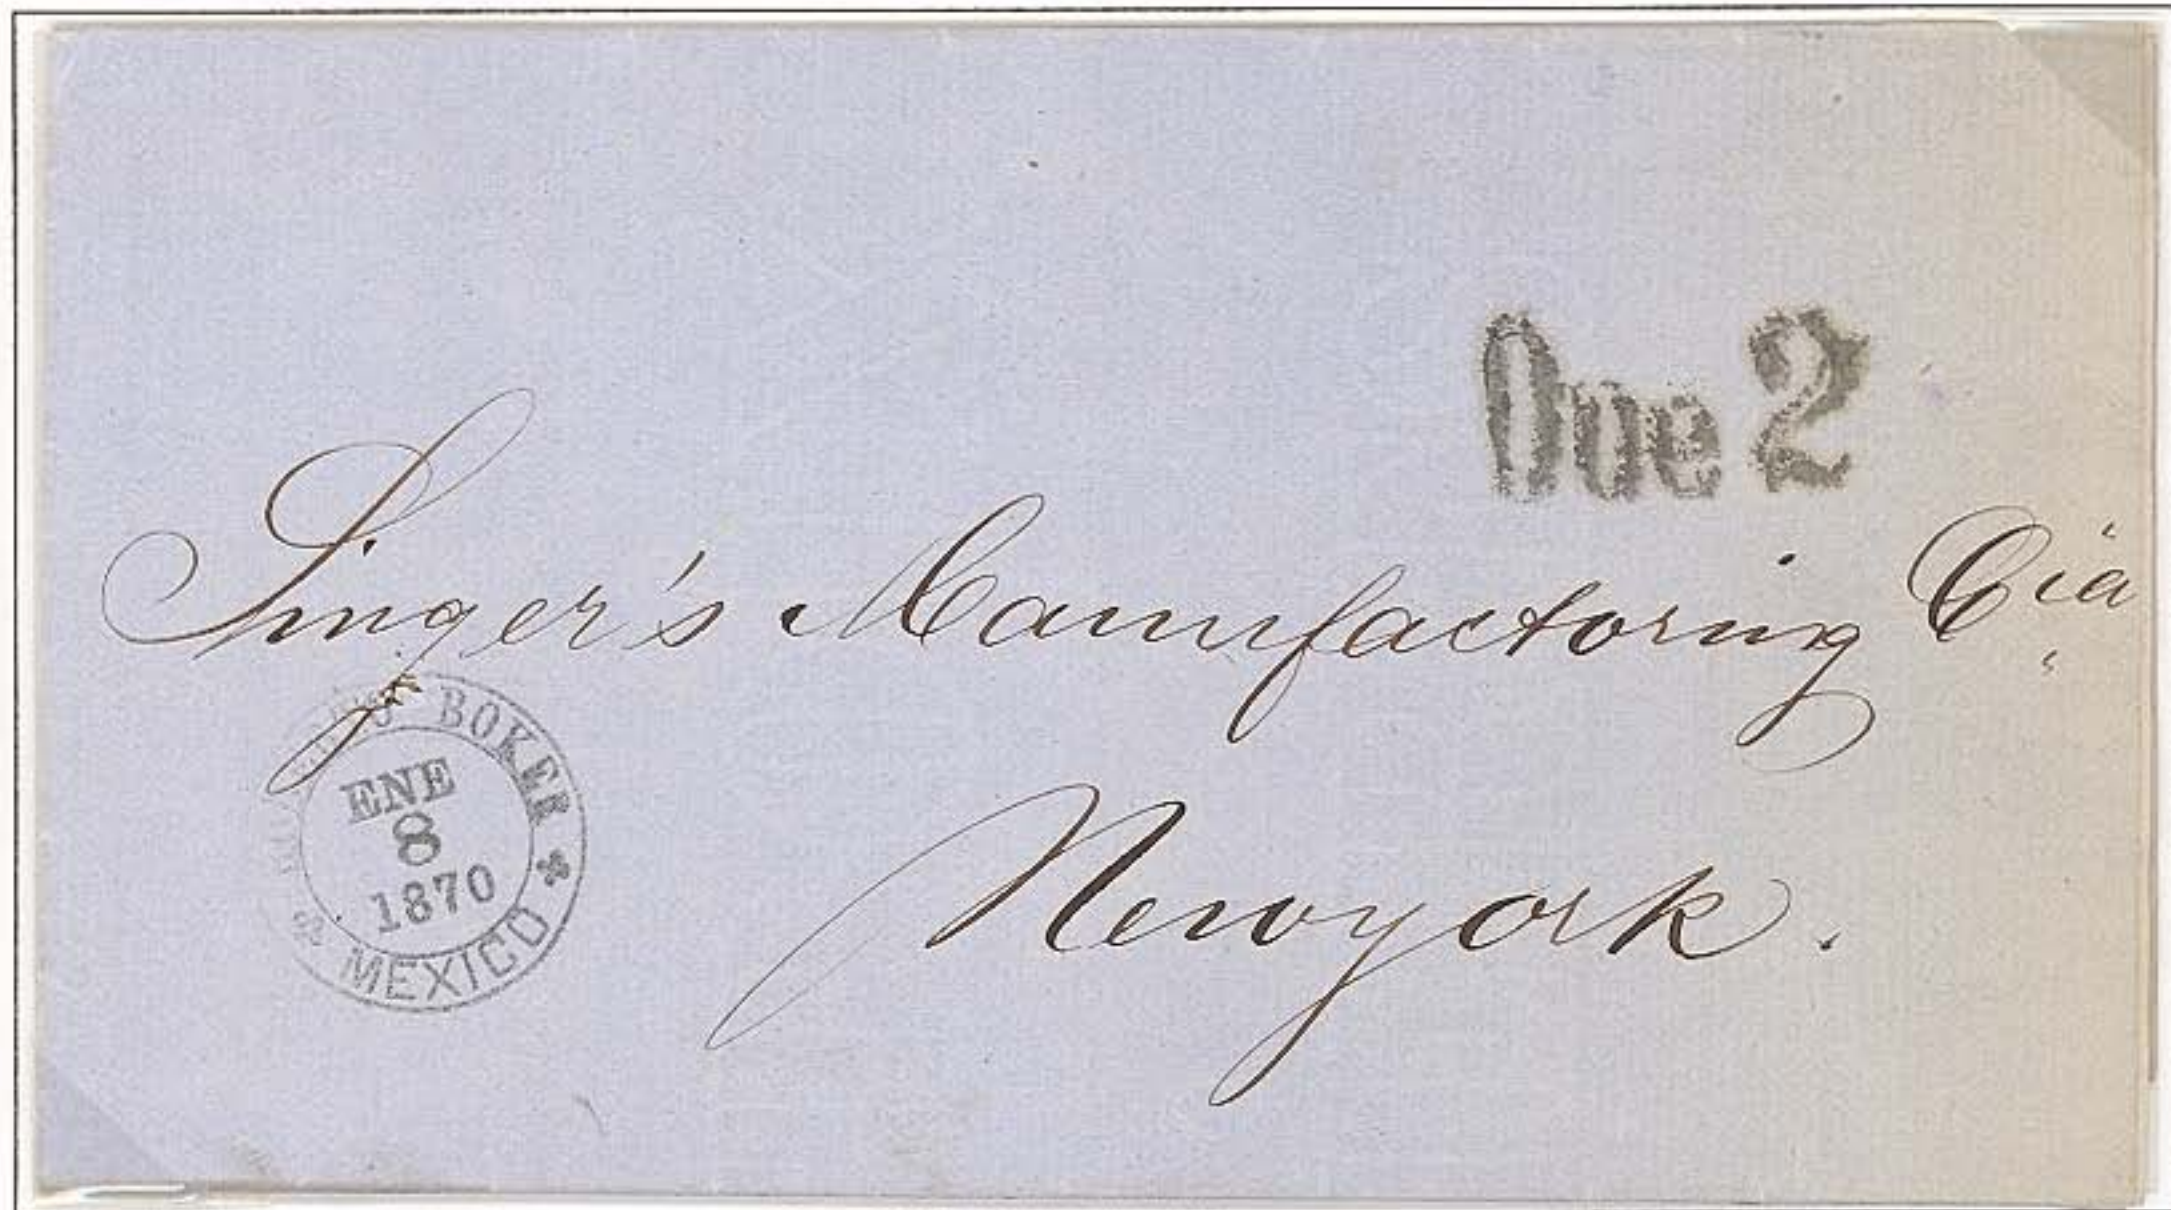 Due 2
Singer's Manufactoring Cía
Newyork.
BOKER
ENE
8
1870
MEXICO